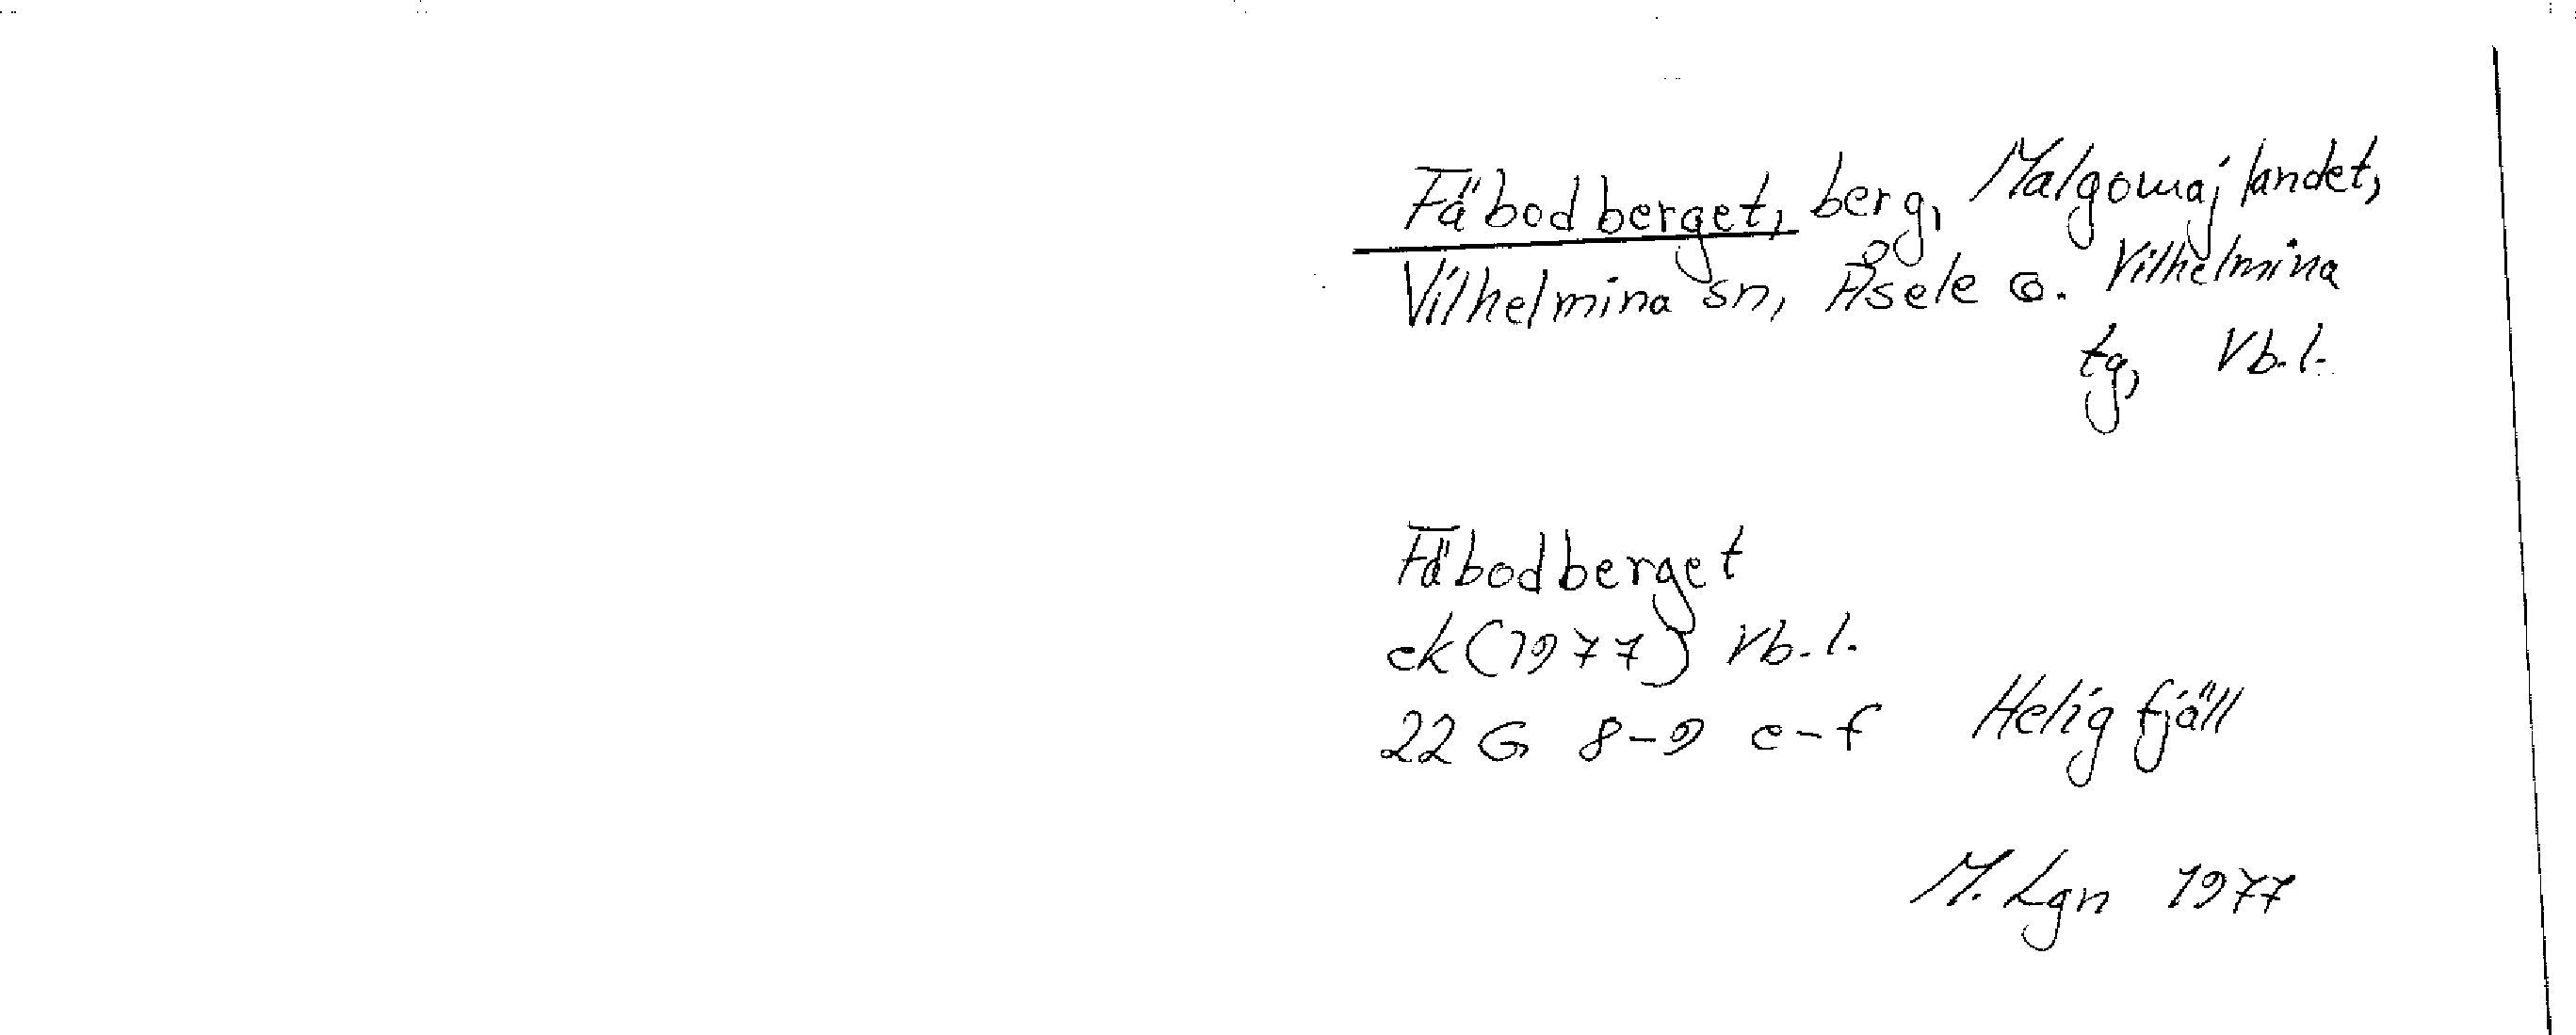 Fäbodberget, berg, Malgomajlandet,
Vilhelmina sn, Åsele o. Vilhelmina
tg, Vb.l.
Fäbodberget
ek (1977) Vb.l.
22 G 8-9 e-f Helig fjäll
M. Lgn 1977